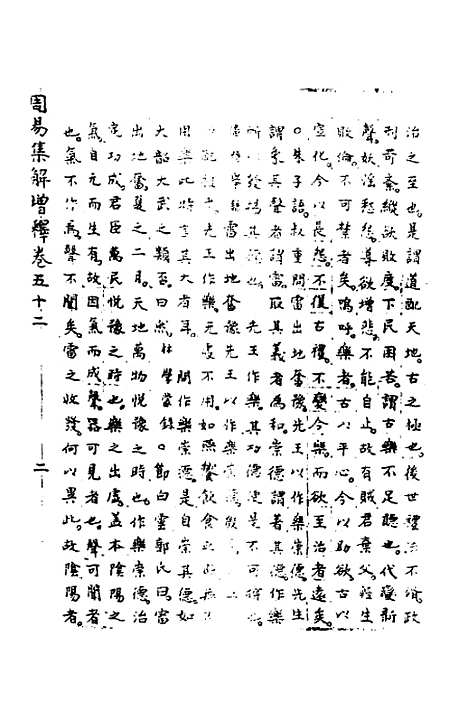 治之至也。是謂道配天地。古之極也。後世禮法不脩政
刑苛紊。縱欲敗度。下民困苦。謂古樂不足聽也。代變新
聲。妖淫愁怨。導欲增悲。不能自止。故有賊君棄父。輕生
敗倫。不可禁者矣。嗚呼。樂者。古以平心。今以助欲。古以
宣化。今以長怨。不復古禮。不變今樂。而欲至治者遠矣。
○朱子語叔重問雷出地奮豫。先王以作樂崇德。先生
謂象其聲者謂雷。取其義者為和。崇德謂著其德。作樂
所以發揚其德也。先王作樂其功德便是不可
雷出地奮豫。先王以作樂崇德
先王作樂无處不用。如燕饗飲食
用樂。此時言其大者耳。問作樂崇德。是自崇其德。如
大韶大武之類否。曰然。節白雲郭氏曰。雷
出地奮。夏之二月。天地萬物悅豫之時也。作樂崇德。治
定功成。君臣萬民悅豫之時也。樂之出虛。蓋本陰陽之
氣。自元而生有。故因氣而成聲。器可見者也。聲可聞者
也。氣不作焉。聲不聞矣。雷之收發。何以異此。故陰陽者。
周易集解增釋卷五十二
二